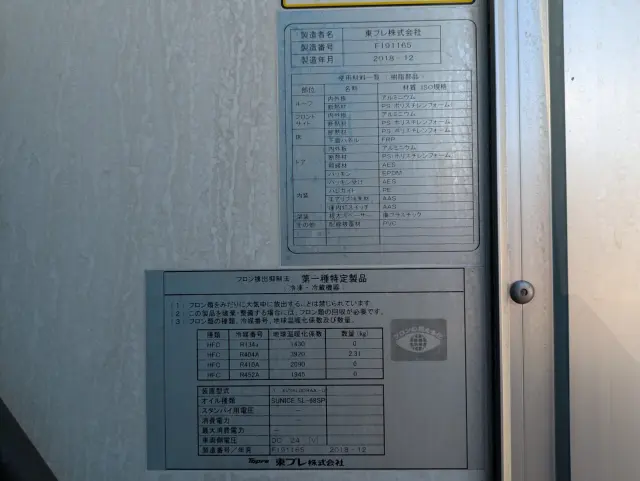 製造者名 東プレ株式会社
製造番号 F191165
製造年月 2019-12
使用材料一覧 樹脂部品
部位 名称 材質 ISO規格
ルーフ 内外板 アルミニウム
断熱材 PS:ポリスチレンフォーム
フロント 内外板 アルミニウム
サイド 断熱材 PS:ポリスチレンフォーム
床 断熱材 PS:ポリスチレンフォーム
FRP
ドア 内外板 アルミニウム
断熱材 PS:ポリスチレンフォーム
AES
パッキン EPDM
パッキン受け AES
内装 PE
AAS
庫内灯スイッチ AAS
再プラスチック
その他 PVC
フロン排出抑制法 第一種特定製品
(冷凍・冷蔵機器)
(1) フロン類をみだりに大気中に放出することは禁じられています
(2) この製品を廃棄・整備する場合には、フロン類の回収が必要です。
(3) フロン類の種類、冷媒番号、地球温暖化係数及び数量。
種類 冷媒番号 地球温暖化係数 数量(kg)
HFC R134a 1430 0
HFC R404A 3920 2.31
HFC R410A 2090 0
HFC R452A 1945 0
装置型式
オイル種類 SUNICE SL-68SP
スタンバイ用電圧 -
消費電力 -
最大消費電力 -
車両側電圧 DC 24 V
製造番号/年月 F191165 2019-12
Topre 東プレ株式会社